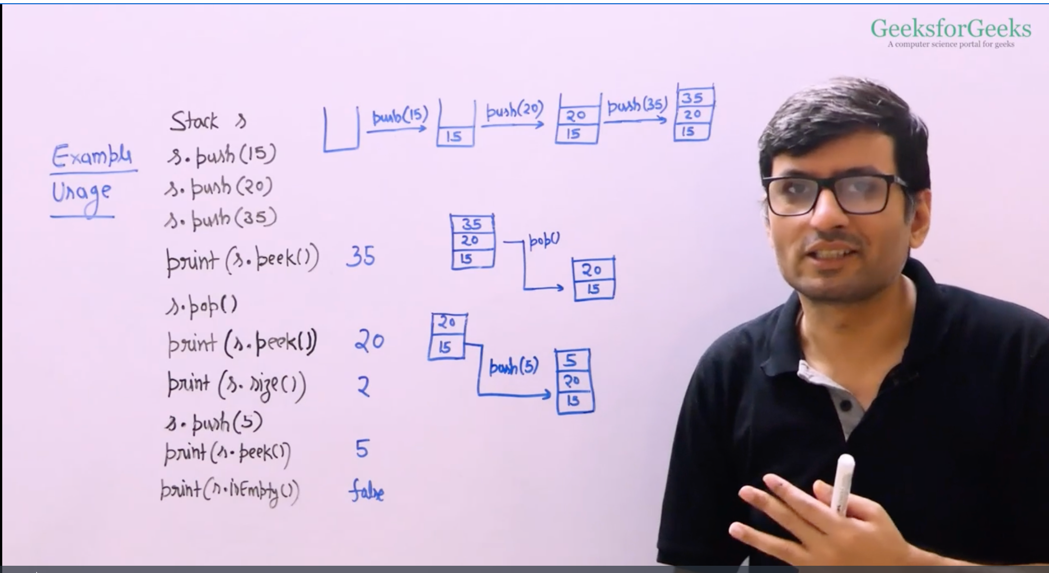 GeeksforGeeks
A computer science portal for geeks
Example
Usage
Stack s
s.push(15)
s.push(20)
s.push(35)
print(s.peek()) 35
s.pop()
print(s.peek()) 20
print(s.size()) 2
s.push(5)
print(s.peek()) 5
print(s.isEmpty()) false
push(15)
15
push(20)
20
15
push(35)
35
20
15
35
20
15
pop()
20
15
20
15
push(5)
5
20
15